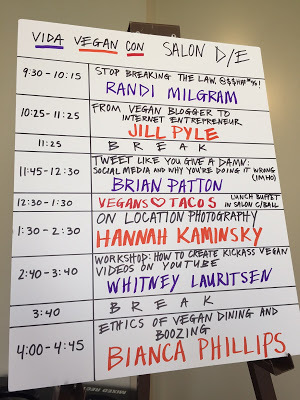 VIDA VEGAN CON SALON D/E
9:30-10:15
STOP BREAKING THE LAW, @$$H#*%!
RANDI MILGRAM
10:25-11:25
FROM VEGAN BLOGGER TO
INTERNET ENTREPRENEUR
JILL PYLE
11:25
BREAK
11:45-12:30
TWEET LIKE YOU GIVE A DAMN:
SOCIAL MEDIA AND WHY YOU'RE DOING IT WRONG
(IMHO)
BRIAN PATTON
12:30-1:30
VEGANS ♡ TACOS
LUNCH BUFFET
IN SALON C/BALL
1:30-2:30
ON LOCATION PHOTOGRAPHY
HANNAH KAMINSKY
2:40-3:40
WORKSHOP: HOW TO CREATE KICKASS VEGAN
VIDEOS ON YOUTUBE
WHITNEY LAURITSEN
3:40
BREAK
4:00-4:45
ETHICS OF VEGAN DINING AND
BOOZING
BIANCA PHILLIPS